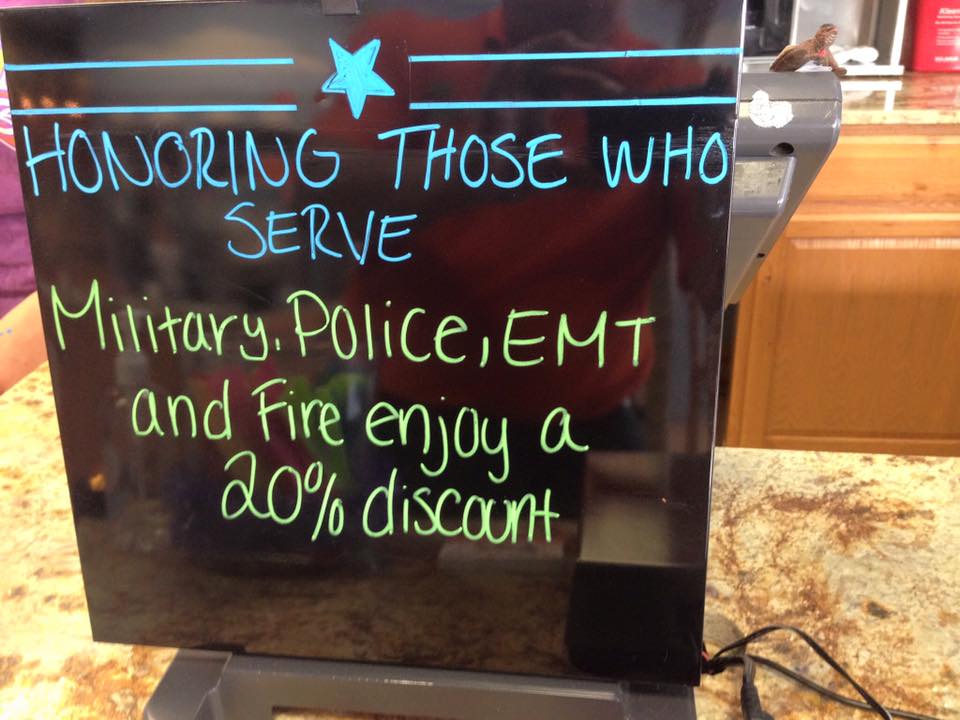 HONORING THOSE WHO
SERVE
Military. Police, EMT
and Fire enjoy a
20% discount